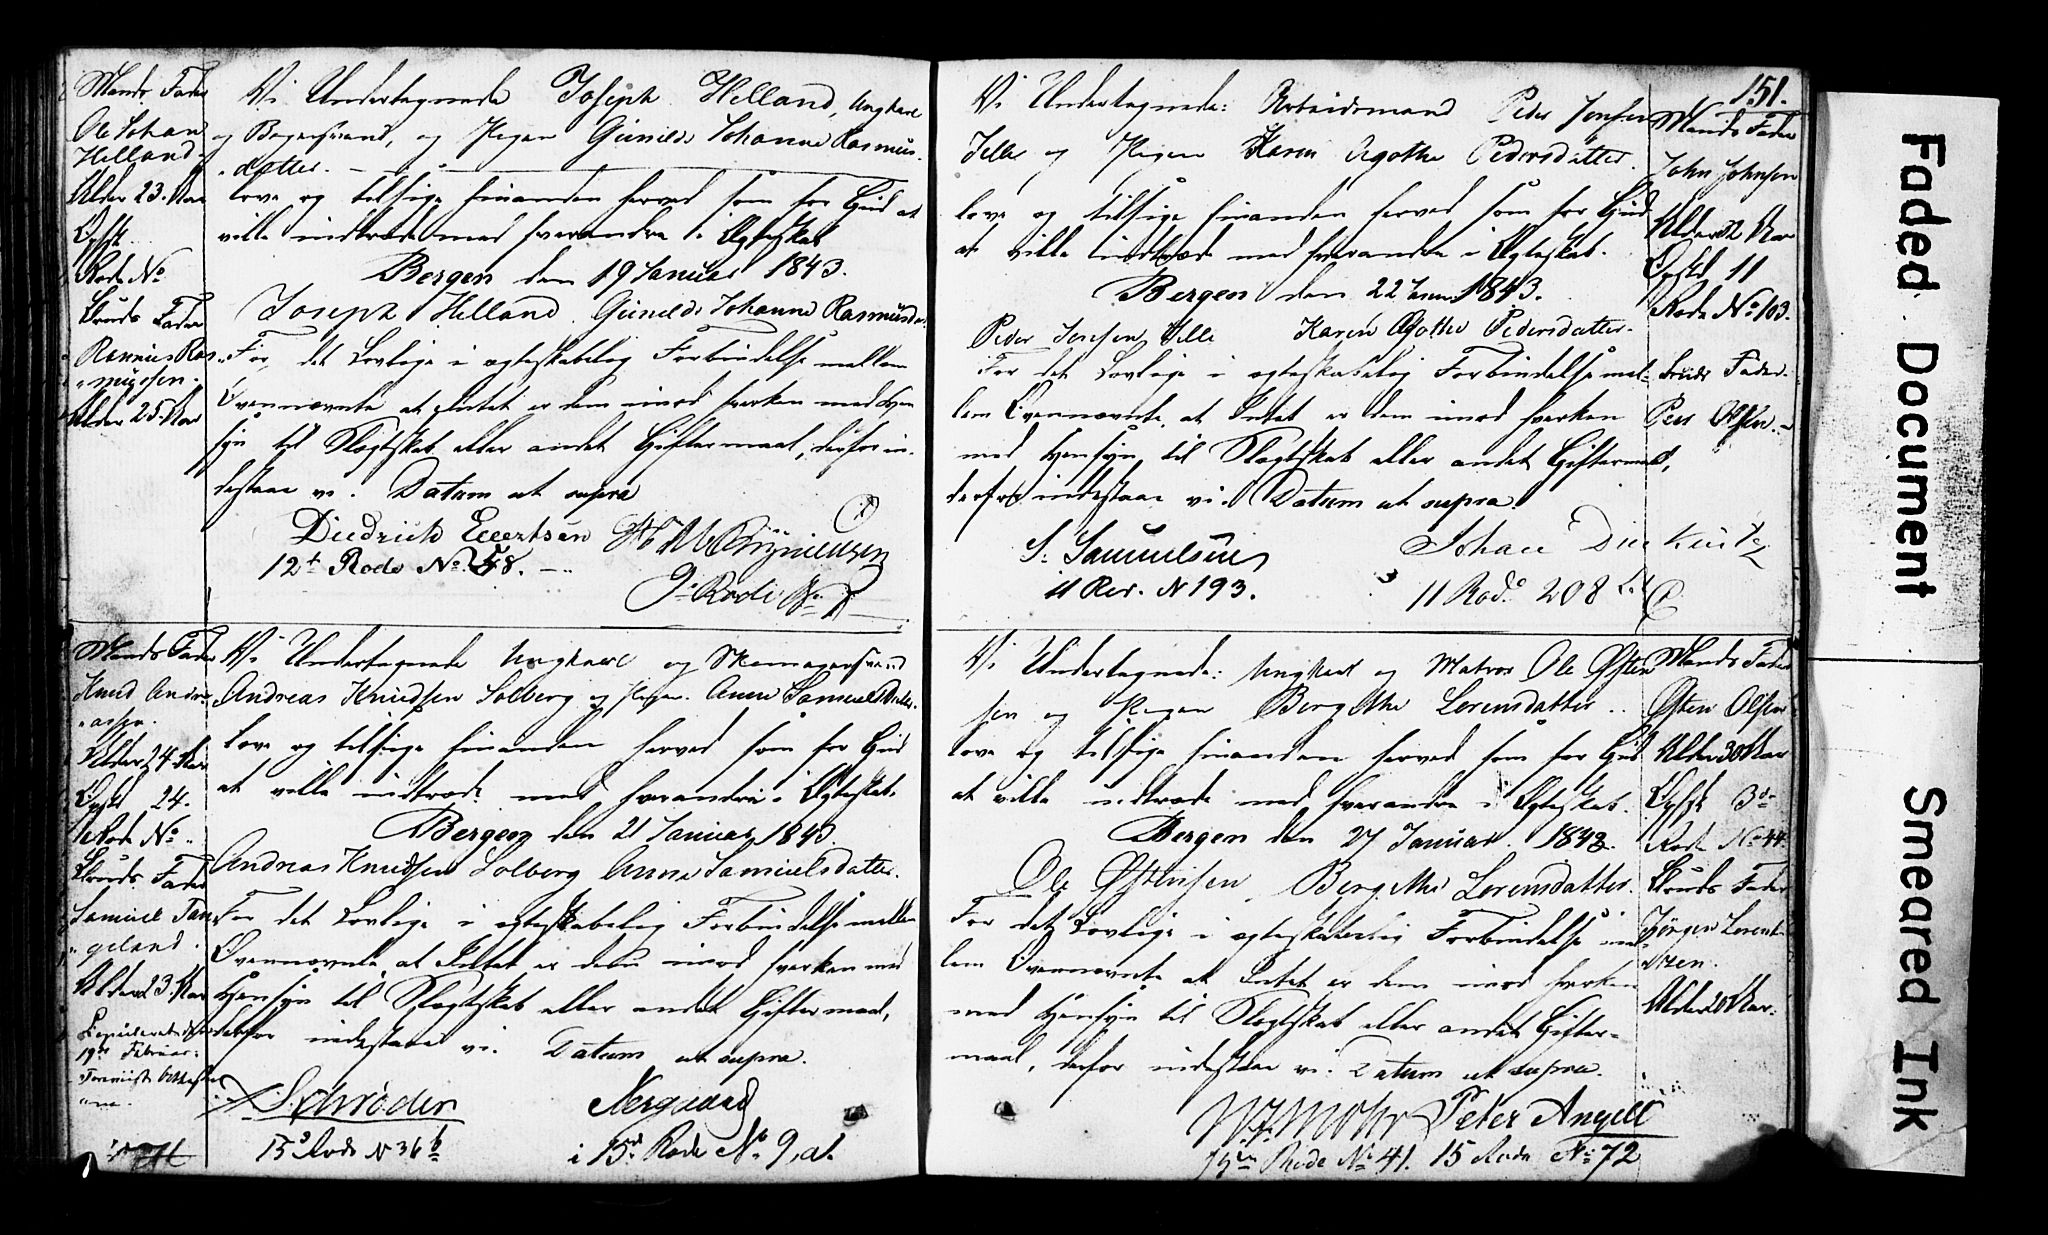 Mands Fader
Ole Johan
Helland.
Alder 23. Aar
Opsk.
Rode No
Bruds Fader
Rasmus Ras-
mussen.
Alder 25. Aar
Vi Undertegnede Joseph Helland, Ungkarl
og Bogersvend, og Pigen Gunilde Johanne Rasmus-
datter.
love og tilsige hinanden herved som for Gud at
ville indtræde med hverandre i Ægteskab
Bergen den 19 Januar 1843.
Joseph Helland Gunilde Johanne Rasmusd.
For det Lovlige i egteskabelig Forbindelse mellem
Ovennævnte at Intet er dem imod hverken med Hen
syn til Slægtskab eller andet Giftermaal, derfor in-
destaae vi. Datum ut supra
Diedrich Evertsen
12te Rode No. 58.
9de Rode No
Mands Fader
Knud Andre-
Alder 24 Aar
Opskt 24.
Rode No.
Bruds Fader
Samuel Tan
geland.
Alder 23. Aar
19de Februar.
Vi Undertegnede Ungkarl og Skomagersvend
Andreas Knudsen Solberg og Pigen Anne Samuelsdatter.
Love og tilsige hinanden herved som for Gud
at ville indtræde med hverandre i Ægteskab.
Bergen den 21 Januar 1843.
Andreas Knudsen Solberg Anne Samuelsdatter.
For det Lovlige i egteskabelig Forbindelse mellem
Ovennævnte, at Intet er dem imod hverken med
Hensyn til Slægtskab eller andet Giftermaal,
derfor indestaae vi. Datum ut supra.
Schrøder Nergaard
15d Rode N 36 b i 15d. Rode No. 9, a.
151.
Vi Undertegnede: Arbeidsmand Peder Jensen
Jelle og Pigen Karen Agothe Pedersdatter.
love og tilsige hinanden herved som for Gud
at ville indtræde med hverandre i Ægteskab.
Bergen den 22 Januar 1843.
Peder Jensen Jelle Karen Agothe Pedersdatter.
For det Lovlige i egteskabelig Forbindelse mel-
lem Ovennævnte, at Intet er dem imod hverken
med Hensyn til Slægtskab eller andet Giftermaal,
derfor indestaae vi. Datum ut supra.
S. Samuelsen Johan
11 Rode N 193. 11 Rod. 208
Mands Fader
John Johnsen
Alder 32 Aar
Opskt 11
Rode No 103.
Bruds Fader.
Peer Olsen.
Vi Undertegnede: Ungkarl og Matros Ole Østen
sen og Pigen Bergithe Lorensdatter.
love og tilsige hinanden herved som for Gud
at ville indtræde med hverandre i Ægteskab.
Bergen den 27 Januar 1843.
Ole Østensen Bergithe Lorensdatter.
For det Lovlige i egteskabelig Forbindelse mel-
lem Ovennævnte at Intet er dem imod hverken
med Hensyn til Slægtskab eller andet Gifter-
maal, derfor indestaae vi. Datum ut supra.
Mohr Peter Angell
15de Rode No 41. 15 Rode No 72
Mands Fader
Østen Olsen
Alder 30 Aar
Opsk 3d
Rode No 44.
Bruds Fader
Jørgen Lorent-
zen.
Alder 20 Aar.
Faded Document
Smeared Ink